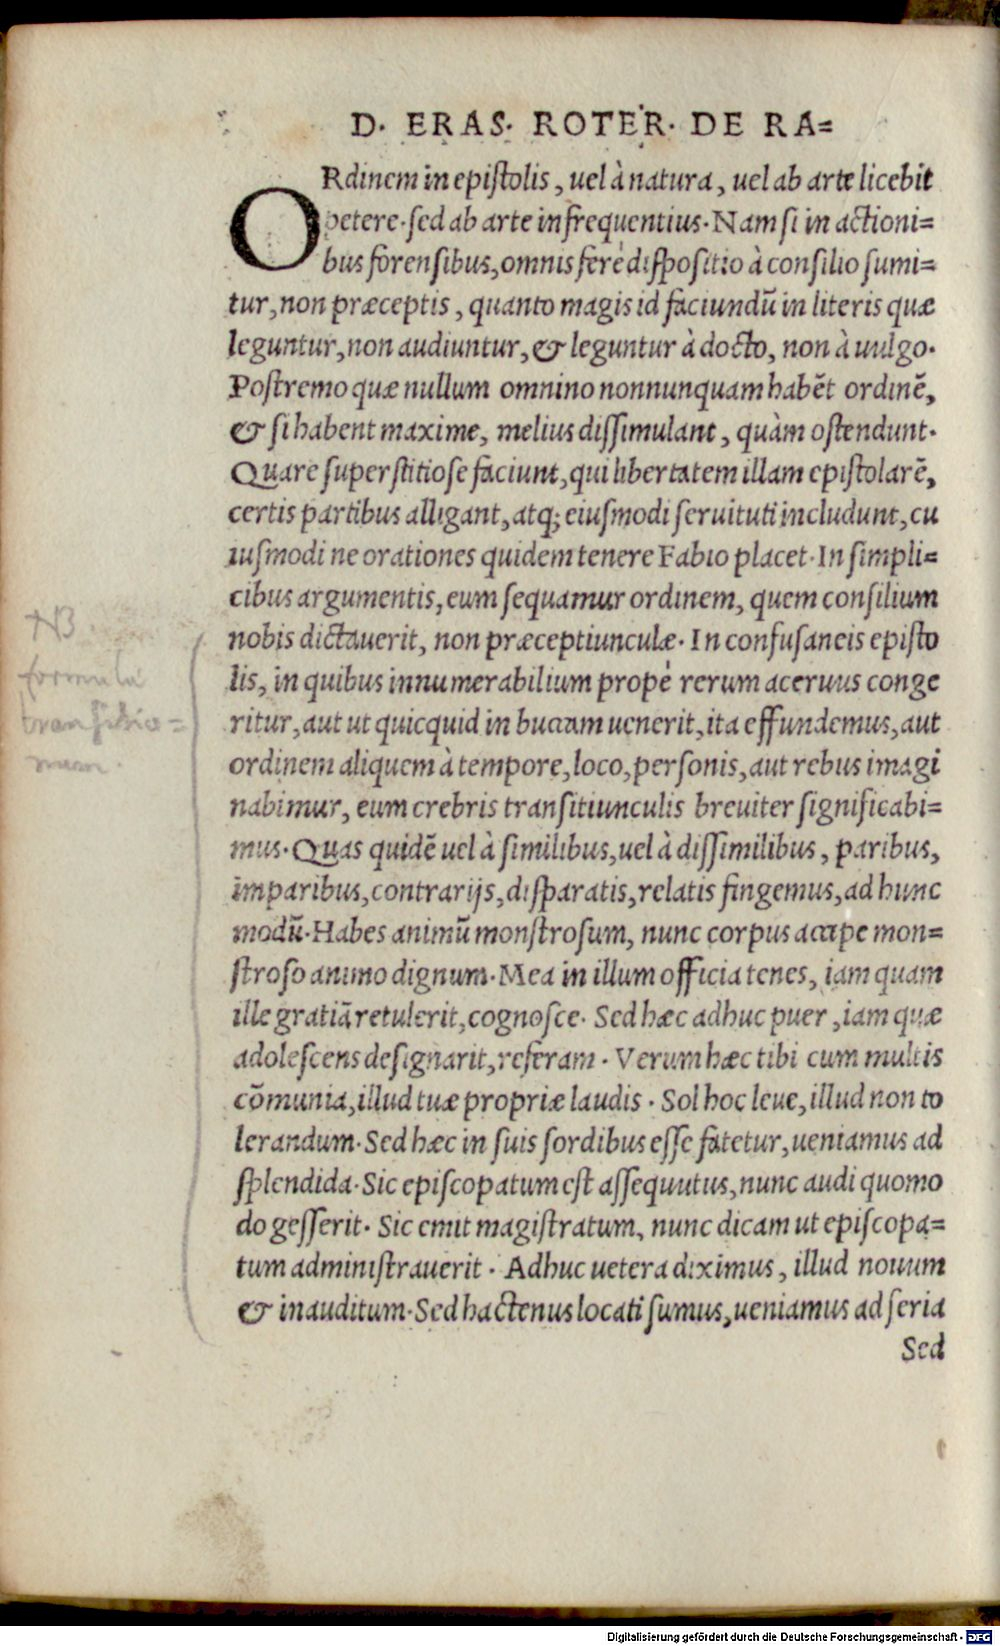 D. ERAS. ROTER. DE RA=
ORdinem in epistolis, uel à natura, uel ab arte licebit
petere. sed ab arte infrequentius. Nam si in actioni=
bus forensibus, omnis ferè dispositio à consilio sumi=
tur, non præceptis, quanto magis id faciundũ in literis quæ
leguntur, non audiuntur, & leguntur à docto, non à uulgo.
Postremo quæ nullum omnino nonnunquam habẽt ordinẽ,
& si habent maxime, melius dissimulant, quàm ostendunt.
Quare superstitiose faciunt, qui libertatem illam epistolarẽ,
certis partibus alligant, atq; eiusmodi seruituti includunt, cu
iusmodi ne orationes quidem tenere Fabio placet. In simpli=
cibus argumentis, eum sequamur ordinem, quem consilium
nobis dictauerit, non præceptiunculæ. In confusaneis episto
lis, in quibus innumerabilium propè rerum aceruus conge
ritur, aut ut quicquid in buccam uenerit, ita effundemus, aut
ordinem aliquem à tempore, loco, personis, aut rebus imagi
nabimur, eum crebris transitiunculis breuiter significabi=
mus. Quas quidẽ uel à similibus, uel à dissimilibus, paribus,
imparibus, contrarijs, disparatis, relatis fingemus, ad hunc
modũ. Habes animũ monstrosum, nunc corpus accipe mon=
stroso animo dignum. Mea in illum officia tenes, iam quam
ille gratiã retulerit, cognosce. Sed hæc adhuc puer, iam quæ
adolescens designarit, referam. Verum hæc tibi cum multis
cõmunia, illud tuæ propriæ laudis. Sol hoc leue, illud non to
lerandum. Sed hæc in suis sordibus esse fatetur, ueniamus ad
splendida. Sic episcopatum est assequutus, nunc audi quomo
do gesserit. Sic emit magistratum, nunc dicam ut episcopa=
tum administrauerit. Adhuc uetera diximus, illud nouum
& inauditum. Sed hactenus locati sumus, ueniamus ad seria
Sed
NB
formula
transitio=
num.
Digitalisierung gefördert durch die Deutsche Forschungsgemeinschaft - DFG